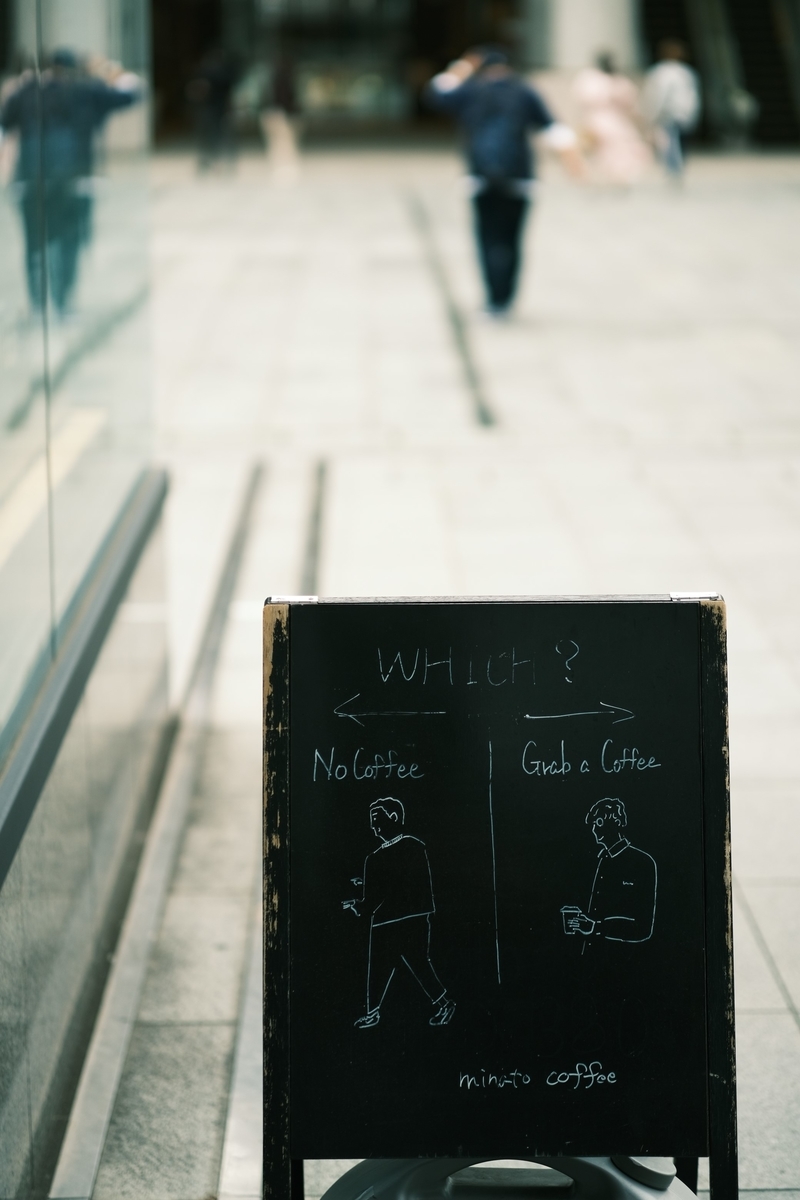 WHICH?
No Coffee
Grab a Coffee
minato coffee